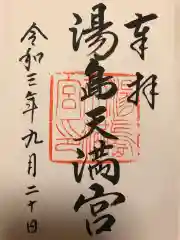 奉拝
湯島天満宮
令和三年九月二十日